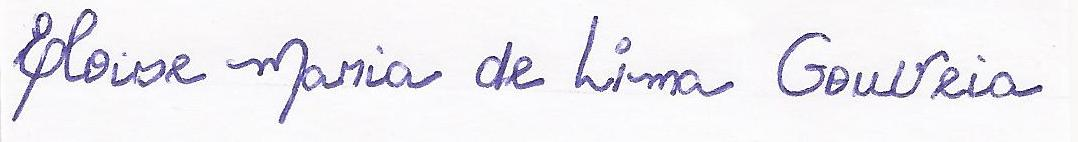 Eloise Maria de Lima Gouveia